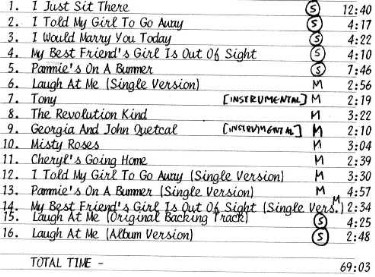 1. I Just Sit There Ⓢ 12:40
2. I Told My Girl To Go Away Ⓢ 4:17
3. I Would Marry You Today Ⓢ 4:22
4. My Best Friend's Girl Is Out Of Sight Ⓢ 4:10
5. Pammie's On A Bummer Ⓢ 7:46
6. Laugh At Me (Single Version) M 2:56
7. Tony [INSTRUMENTAL] M 2:19
8. The Revolution Kind M 3:22
9. Georgia And John Quetcal [INSTRUMENTAL] M 2:10
10. Misty Roses M 3:04
11. Cheryl's Going Home M 2:39
12. I Told My Girl To Go Away (Single Version) M 3:30
13. Pammie's On A Bummer (Single Version) M 4:57
14. My Best Friend's Girl Is Out Of Sight (Single Vers.) M 2:34
15. Laugh At Me (Original Backing Track) Ⓢ 4:25
16. Laugh At Me (Album Version) Ⓢ 2:48
TOTAL TIME - 69:03